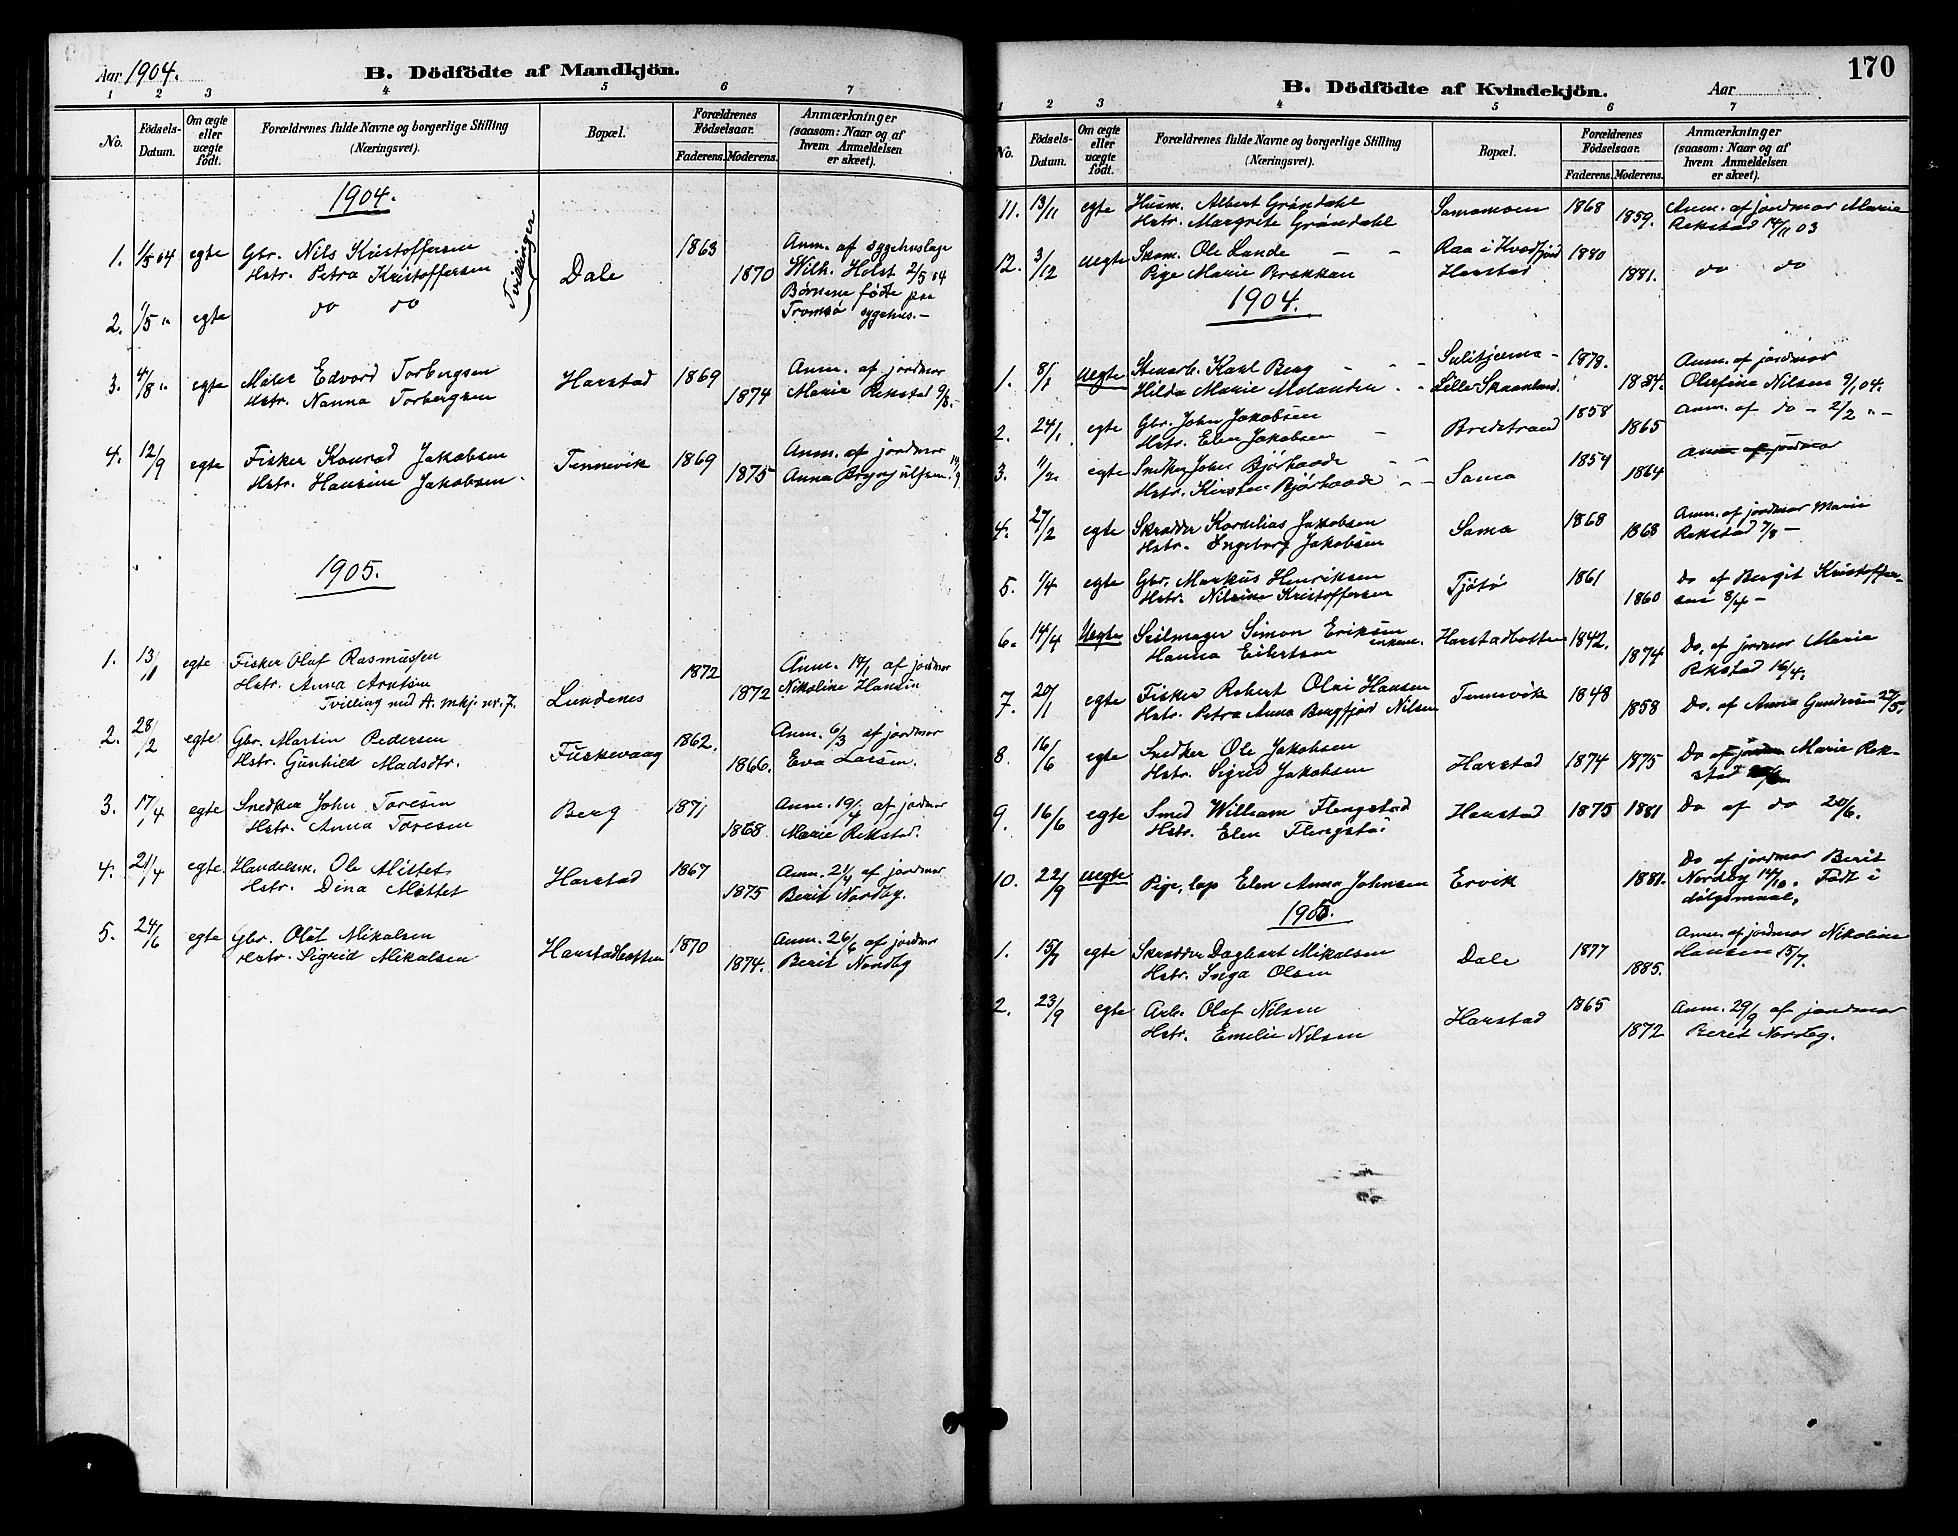 Aar 1904.
B. Dödfödte af Mandkjön.
1 2 3 4 5 6 7
No.
Födsels-
Datum.
Om ægte
eller
uægte
født.
Forældrenes fulde Navne og borgerlige Stilling
(Næringsvei).
Bopæl.
Forældrenes
Födselsaar.
Faderens. Moderens.
Anmærkninger
(saasom: Naar og af
hvem Anmeldelsen
er skeet).
1904.
1. 1/5 04 egte Gbr. Nils Kristoffersen
Hstr. Petra Kristoffersen
Tvillinger
Dale 1863 1870
Anm. af sygehuslæge
Wilh. Holst 2/5 04
Børnene fødte paa
Tromsø sygehus.-
2. 1/5 " egte do do
3. 4/8 " egte Maler Edvard Torbergsen
Hstr. Nanna Torbergsen
Harstad 1869 1874
Anm. af jordmor
Marie Rekstad 9/8.-
4. 12/9 egte Fisker Konrad Jakobsen
Hstr. Hansine Jakobsen.
Tennevik 1869 1875
Anm. af jordmor
Anna Brynjulfsen 14/9
1905.
1. 13/1 egte Fisker Olaf Rasmussen
Hstr. Anna Arntsen
Tvilling med A. mkj. nr. 7.
Lundenes 1872 1872
Anm. 14/1 af jordmor
Nikoline Hansen
2. 28/2 egte Gbr. Martin Pedersen
Hstr. Gunhild Madsdtr.
Fuskevaag 1862. 1866.
Anm. 6/3 af jordmor
Eva Larsen.
3. 17/4 egte Snedker John Toresen
Hstr. Anna Toresen
Berg 1871 1868.
Anm. 19/4 af jordmor
Marie Rekstad.
4. 21/4 egte Handelsm. Ole Mittet
Hstr. Dina Mittet
Harstad 1867 1875
Anm. 21/4 af jordmor
Berit Nordby.
5. 24/6 egte Gbr. Olat Mikalsen
Hstr. Sigrid Mikalsen
Harstadbotten 1870 1874.
Anm. 26/6 af jordmor
Berit Nordby
170
B. Dödfödte af Kvindekjön.
Aar
1 2 3 4 5 6 7
No.
Födsels-
Datum.
Om ægte
eller
uægte
födt.
Forældrenes fulde Navne og borgerlige Stilling
(Næringsvei).
Bopæl.
Forældrenes
Födselsaar.
Faderens. Moderens.
Anmærkninger
(saasom: Naar og af
hvem Anmeldelsen
er skeet).
11. 13/11 egte Husm. Albert Gröndahl
Hstr. Margrete Gröndahl
Samamoen 1868 1859.
Anm. af jordmor Marie
Rekstad 14/11 03
12. 3/12 uegte Skom. Ole Lunde - -
Pige Marie Brekkan
Raa i Kvædfjord
Harstad
1880 1881. do do
1904.
1. 8/1 uegte Stenarb. Karl Berg - -
Hilda Marie Molander - -
Sulitjelma -
Lille Skaanland.
1878. 1884.
Anm. af jordmor
Olufine Nilsen 9/1 04.
2. 24/1 egte Gbr. John Jakobsen
Hstr. Elen Jakobsen -
Bredstrand 1858 1865
Anm. af do - 2/2 " -
3. 11/2 egte Snedker John Bjørhaade - -
Hstr. Kirsten Bjørhaade - -
Sama 1854 1864
Anm. af jordmor
4. 27/2 egte Skrædder Kornelius Jakobsen
Hstr. Ingeborg Jakobsen
Sama 1868 1868
Anm. af jordmor Marie
Rekstad 7/3 -
5. 1/4 egte Gbr. Markus Henriksen
Hstr. Nilsine Kristoffersen
Tjötö 1861 1860
Do af Bergit Kristoffer-
sen 8/4 -
6. 14/4 Uegte Seilmager Simon Eriksen enkem.
Hanna Eilertsen
Harstadbotten 1842. 1874
Do. af jordmor Marie
Rekstad 16/4.
7. 20/1 egte Fisker Robert Olai Hansen
Hstr. Petra Anna Bergfjord Nilsen
Tennevik 1848 1858
Do. af Anna Gundersen 27/5.
8. 16/6 egte Snedker Ole Jakobsen
Hstr. Sigrid Jakobsen
Harstad 1874 1875
Do af jordm Marie Rek-
stad
9. 16/6 egte Smed William Flengstad
Hstr. Elen Flengstad
Harstad 1875 1881
Do af do 20/6.
10. 22/9 uegte Pige, lap Elen Anna Johnsen
Ervik 1881.
Do af jordmor Berit
Nordby 14/10. Født i
dølgsmaal.
1905.
1. 15/7 egte Skrædder Dagbart Mikalsen
Hstr. Inga Olsen
Dale 1877 1885.
Anm. af jordmor Nikoline
Hansen 15/7.
2. 23/9 egte Arb. Olaf Nilsen
Hstr. Emelie Nilsen
Harstad 1865 1872
Anm. 29/9 af jordmor
Berit Nordby.